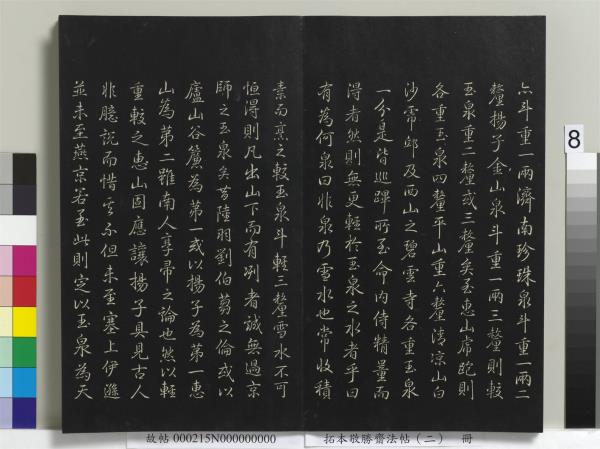 六斗重一兩濟南珍珠泉斗重一兩二
釐揚子金山泉斗重一兩三釐則較
玉泉重二釐或三釐矣至惠山虎跑則
各重玉泉四釐平山重六釐清凉山白
沙雪邱及西山之碧雲寺各重玉泉
一分是皆巡蹕所至命內侍精量而
得者然則無更輕於玉泉之水者乎曰
有為何泉曰非泉乃雪水也常收積
素而烹之較玉泉斗輕三釐雪水不可
恒得則凡出山下而有冽者誠無過京
師之玉泉矣昔陸羽劉伯芻之倫或以
廬山谷簾為第一或以揚子為第一惠
山為第二雖南人享帚之論也然以輕
重較之惠山固應讓揚子具見古人
非臆說而惜其不但未至塞上伊遜
並未至燕京若至此則定以玉泉為天
8
故帖 000215N000000000
拓本敬勝齋法帖（二） 冊